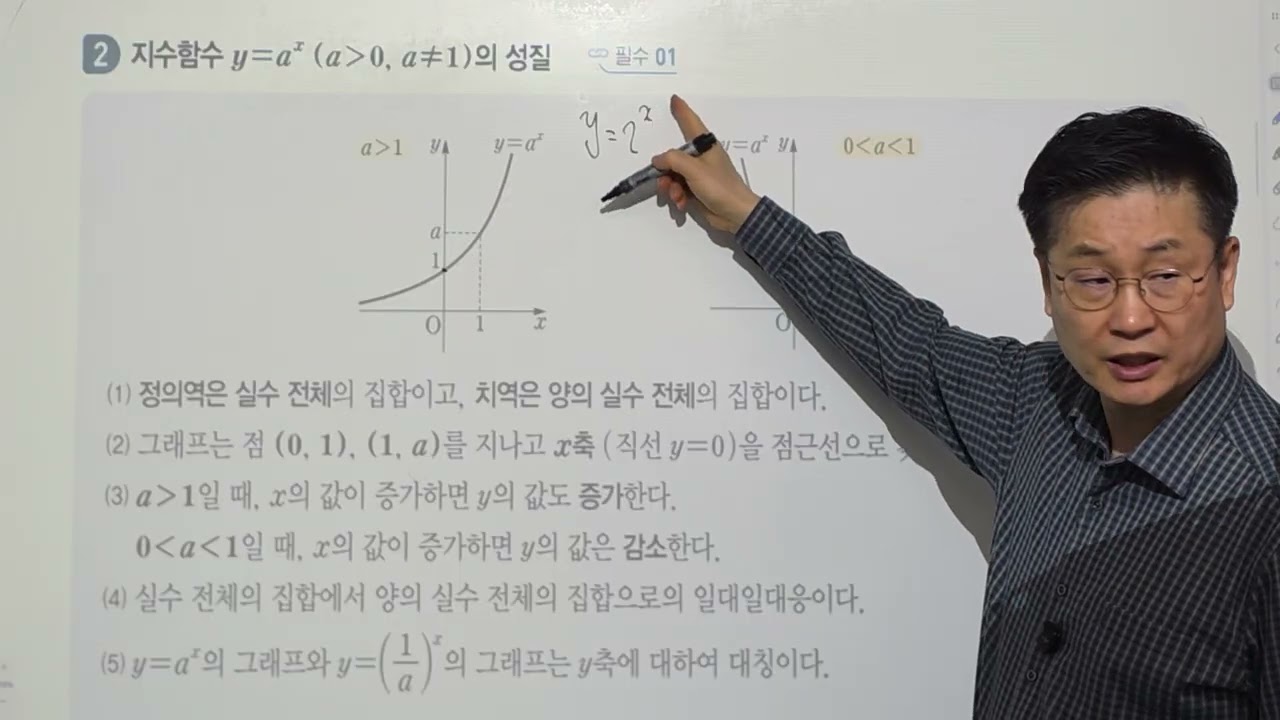 2 지수함수 y=aˣ (a>0, a≠1)의 성질 필수 01
y=2ˣ
a>1 y y=aˣ
a
1
O 1 x
y=aˣ y 0<a<1
O
(1) 정의역은 실수 전체의 집합이고, 치역은 양의 실수 전체의 집합이다.
(2) 그래프는 점 (0, 1), (1, a)를 지나고 x축 (직선 y=0)을 점근선으로
(3) a>1일 때, x의 값이 증가하면 y의 값도 증가한다.
0<a<1일 때, x의 값이 증가하면 y의 값은 감소한다.
(4) 실수 전체의 집합에서 양의 실수 전체의 집합으로의 일대일대응이다.
(5) y=aˣ의 그래프와 y=(1/a)ˣ의 그래프는 y축에 대하여 대칭이다.